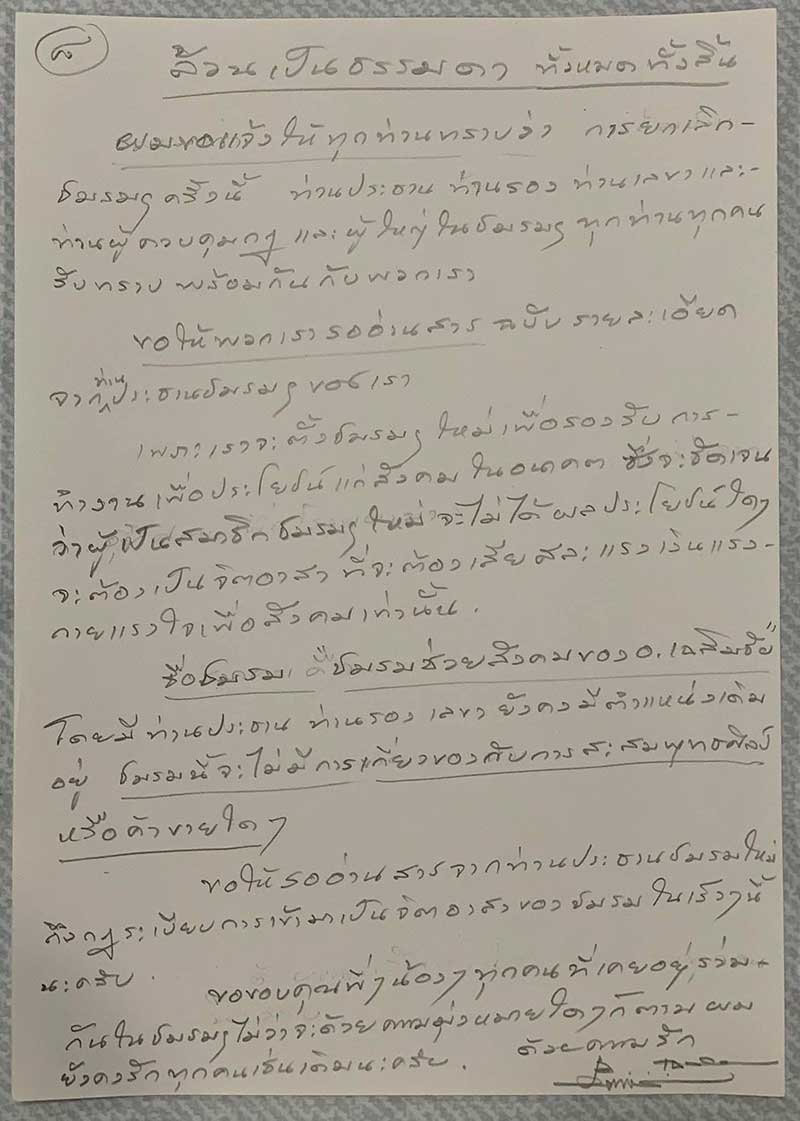 ๘
ล้วนเป็นธรรมดา ทั้งหมดทั้งสิ้น
ผมขอแจ้งให้ทุกท่านทราบว่า การยกเลิก-
ชมรมฯครั้งนี้ ท่านประธาน ท่านรอง ท่านเลขาและ-
ท่านผู้ควบคุมกฎ และผู้ใหญ่ในชมรมฯทุกท่านทุกคน
รับทราบพร้อมกันกับพวกเรา
ขอให้พวกเรารออ่านสารฉบับรายละเอียด
จากท่านประธานชมรมฯของเรา
เพราะเราจะตั้งชมรมฯใหม่เพื่อรองรับการ-
ทำงานเพื่อประโยชน์แก่สังคมในอนาคต ซึ่งจะชัดเจน
ว่าผู้เป็นสมาชิกชมรมฯใหม่จะไม่ได้ผลประโยชน์ใดๆ
จะต้องเป็นจิตอาสา ที่จะต้องเสียสละแรงเงินแรง-
กายแรงใจเพื่อสังคมเท่านั้น.
ชื่อชมรม คือชมรมช่วยสังคมของอ.เฉลิมชัย"
โดยมีท่านประธาน ท่านรอง เลขา ยังคงมีตำแหน่งเดิม
อยู่ ชมรมนี้จะไม่มีการเกี่ยวของกับการสะสมพุทธศิลป์
หรือค้าขายใดๆ
ขอให้รออ่านสารจากท่านประธานชมรมใหม่
ถึงกฎระเบียบการเข้ามาเป็นจิตอาสาของชมรมในเร็วๆนี้
นะครับ.
ขอขอบคุณพี่ๆน้องๆทุกคนที่เคยอยู่ร่วม-
กันในชมรมฯไม่ว่าจะด้วยความมุ่งหมายใดๆก็ตาม ผม
ยังคงรักทุกคนเช่นเดิมนะครับ.
ด้วยความรัก